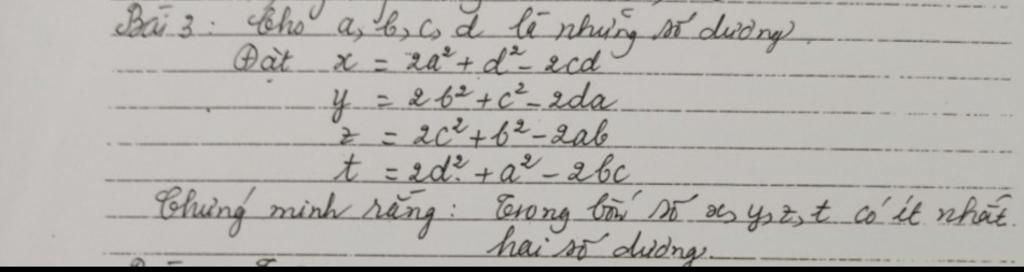 Bài 3: Cho a, b, c, d là những số dương.
Đặt x = 2a² + d² - 2cd
y = 2b² + c² - 2da
z = 2c² + b² - 2ab
t = 2d² + a² - 2bc
Chứng minh rằng: Trong bốn số x, y, z, t có ít nhất
hai số dương.